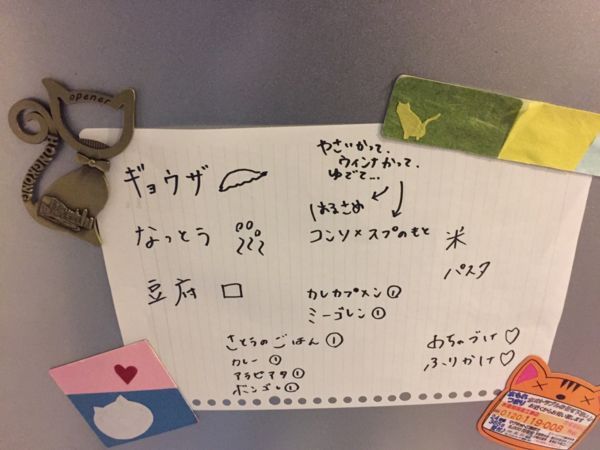 opener
HONGKONG
ギョウザ
なっとう
豆腐
やさいかって、
ウィンナかって、
ゆでて…
はるさめ
コンソメスープのもと
米
パスタ
カレカップメン①
ミーゴレン①
さとうのごはん①
カレー①
アラビアタ①
ボンゴレ①
おちゃづけ♡
ふりかけ♡
0120-119-008